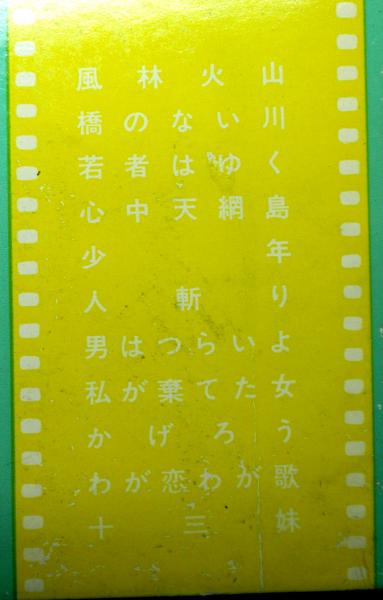 風林火山
橋のない川
若者はゆく
心中天網島
少年
人斬り
男はつらいよ
私が棄てた女
かげろう
わが恋わが歌
十三妹